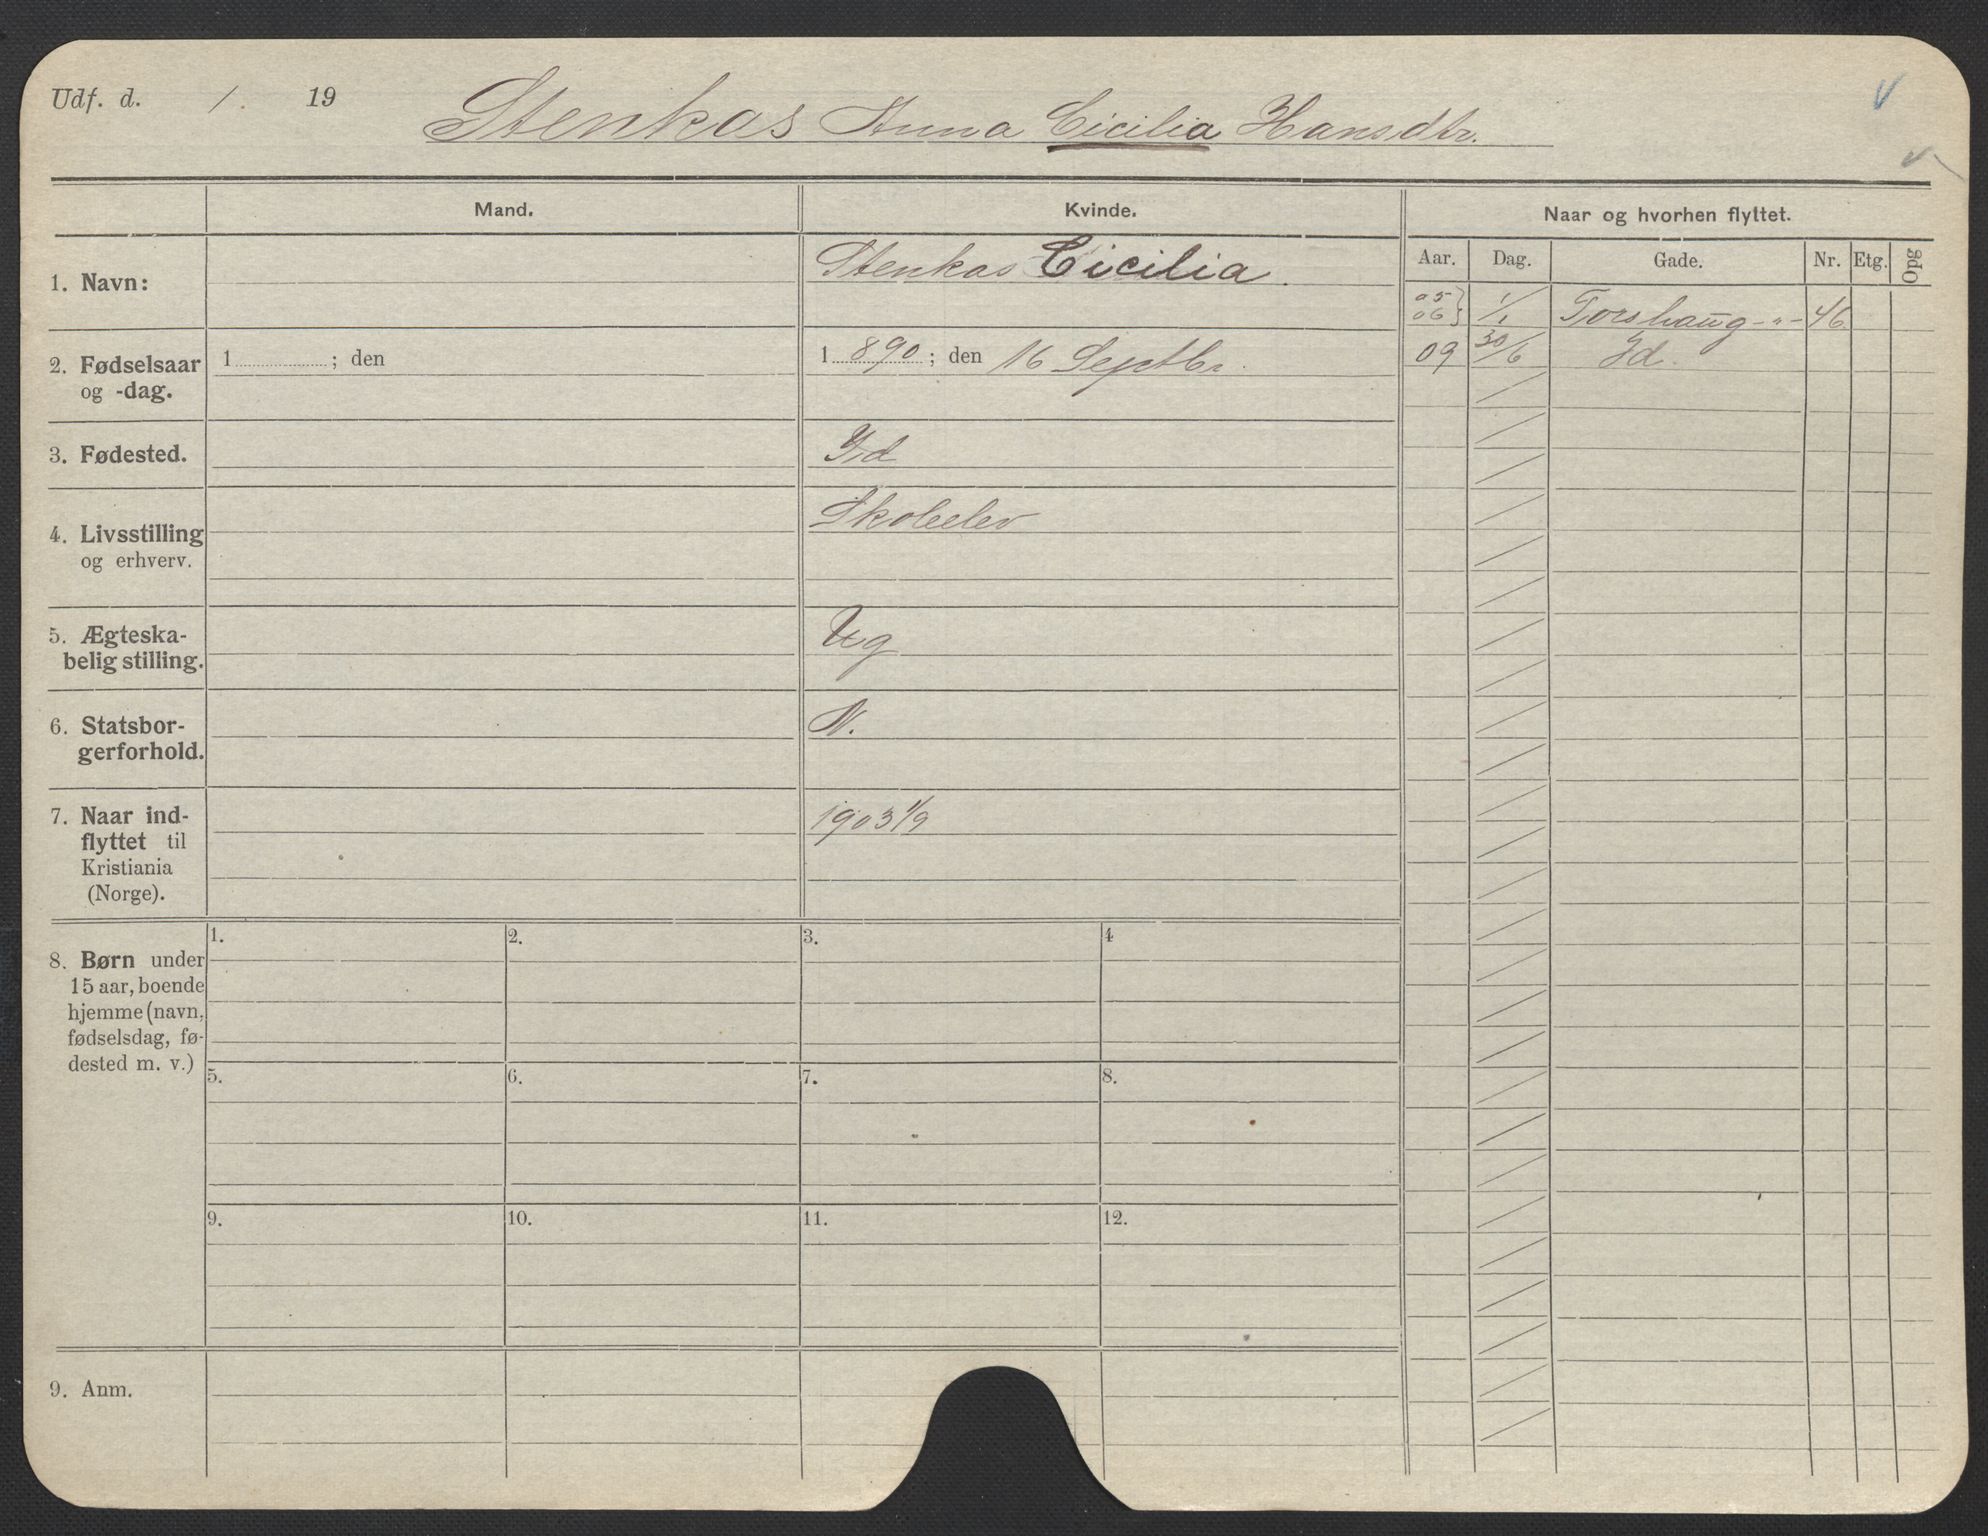 Udf. d. / . 19
Stenkas Anna Cicilia Hansdtr.
Mand.
Kvinde.
Naar og hvorhen flyttet.
Aar. Dag. Gade. Nr. Etg. Opg
1. Navn:
Stenkas Cicilia.
05 } 1/1 Torshaug -"- 46
06
2. Fødselsaar
og -dag.
1 ; den
1 890 ; den 16 Septbr.
09 30/6 Id.
3. Fødested.
Id
4. Livsstilling
og erhverv.
Skoleelev
5. Ægteska-
belig stilling.
Ug
6. Statsbor-
gerforhold.
N.
7. Naar ind-
flyttet til
Kristiania
(Norge).
1903 1/9
8. Børn under
15 aar, boende
hjemme (navn,
fødselsdag, fø-
dested m. v.)
1. 2. 3. 4
5. 6. 7. 8.
9. 10. 11. 12.
9. Anm.